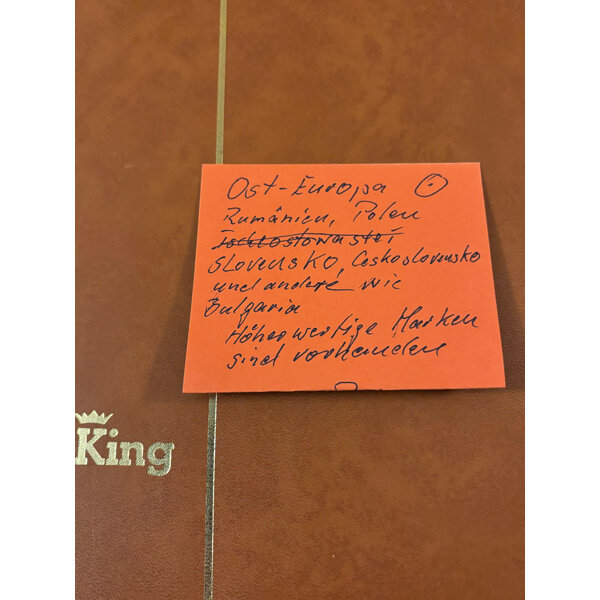 Ost-Europa
Rumänien, Polen
Slovensko, Ceskoslovensko
und andere wie
Bulgaria
Höherwertige Marken
sind vorhanden
King